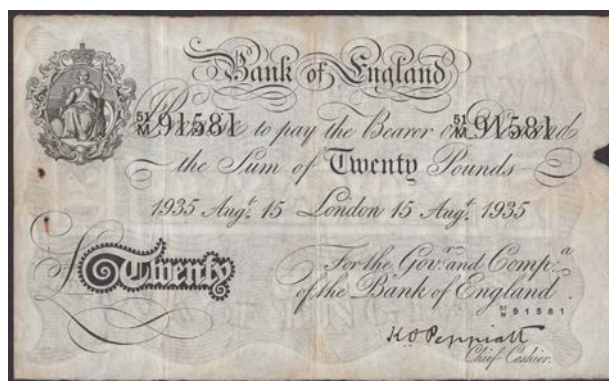 Bank of England
51/M 91581 51/M 91581
Promise to pay the Bearer on Demand
the Sum of Twenty Pounds
1935 Augt. 15 London 15 Augt. 1935
For the Govr. and Compa.
£Twenty of the Bank of England
51/M 91581
K.O Peppiatt
Chief Cashier.